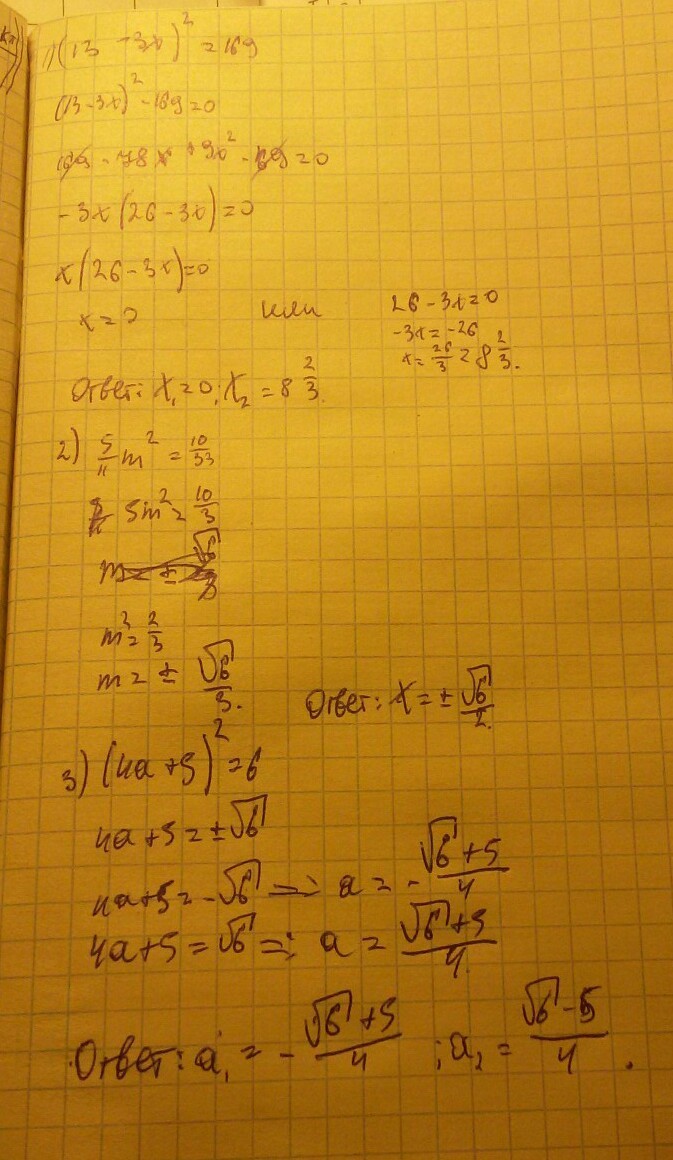 1) (13 - 3x)² = 169
(13 - 3x)² - 169 = 0
169 - 78x + 9x² - 169 = 0
-3x(26 - 3x) = 0
x(26 - 3x) = 0
x = 0 или 26 - 3x = 0
-3x = -26
x = 26/3 = 8 2/3.
Ответ: x₁ = 0; x₂ = 8 2/3.
2) 5/11 m² = 10/33
5m² = 10/3
m = ± √6/3
m² = 2/3
m = ± √6/3.
Ответ: x = ± √6/2.
3) (4a + 5)² = 6
4a + 5 = ±√6
4a + 5 = -√6 => a = - (√6 + 5)/4
4a + 5 = √6 => a = (√6 + 5)/4.
Ответ: a₁ = - (√6 + 5)/4 ; a₂ = (√6 - 5)/4 .